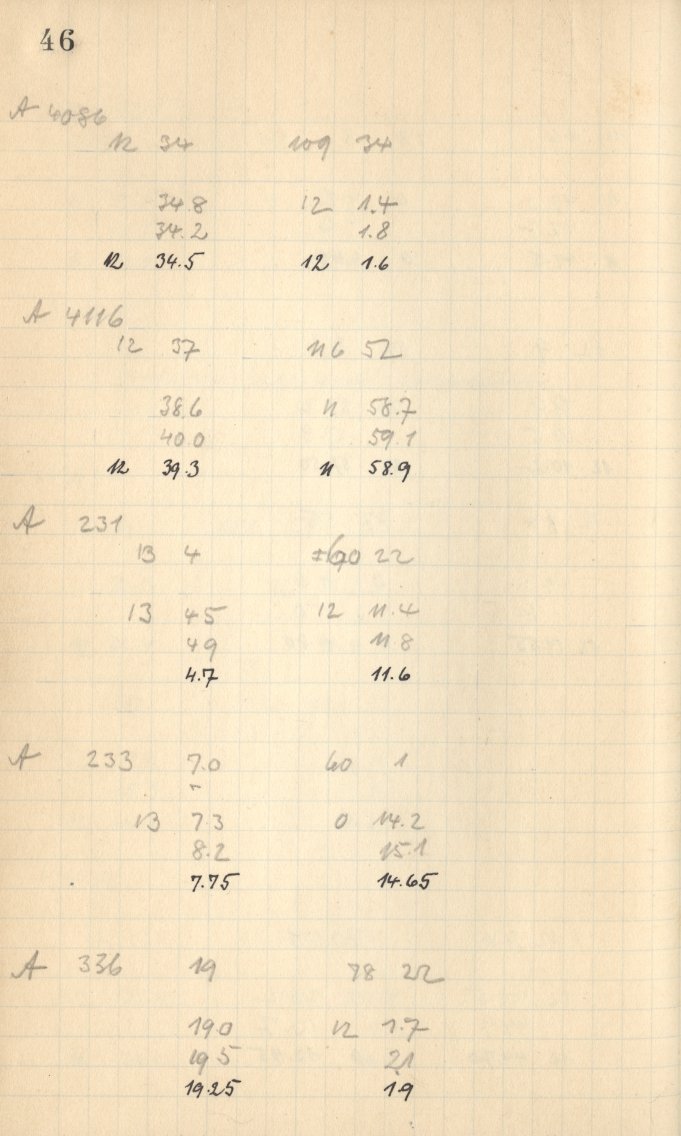 46
A 4086
12 34 109 34
34.8 12 1.4
34.2 1.8
12 34.5 12 1.6
A 4116
12 37 116 52
38.6 11 58.7
40.0 59.1
12 39.3 11 58.9
A 231
13 4 60 22
13 45 12 11.4
49 11.8
4.7 11.6
A 233 7.0 60 1
13 7.3 0 14.2
8.2 15.1
7.75 14.65
A 336 19 78 22
19.0 12 1.7
19.5 2.1
19.25 1.9